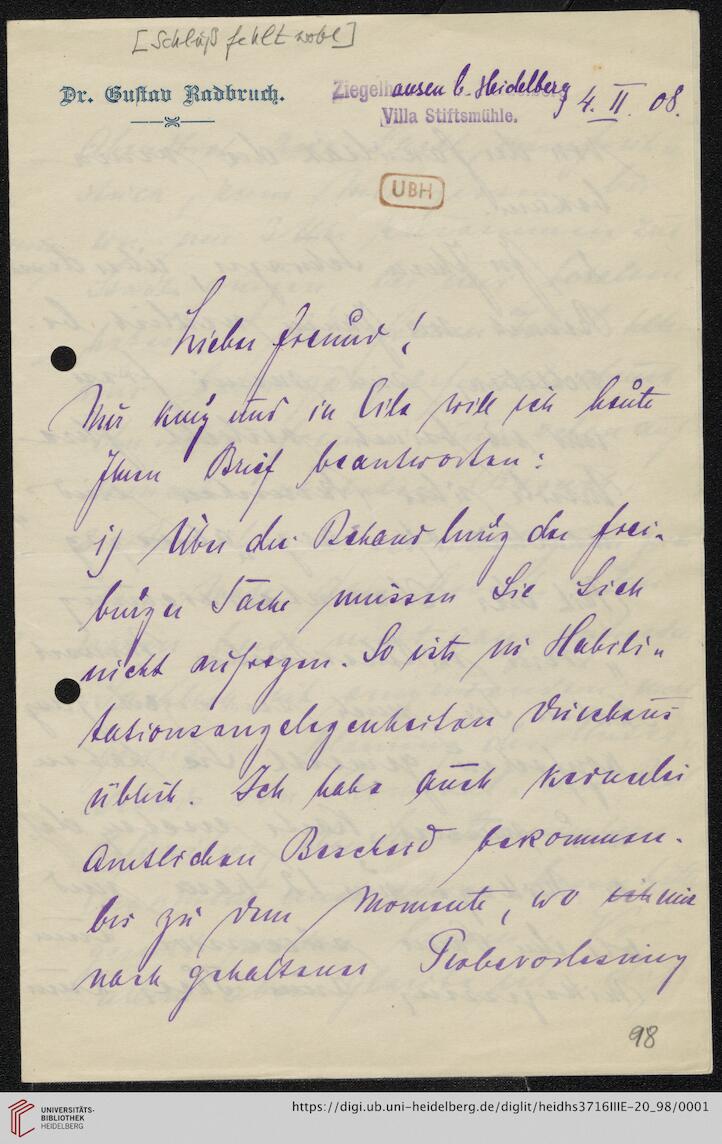 [Schluß fehlt wohl]
Dr. Gustav Radbruch.
Ziegelhausen b. Heidelberg 4. II. 08.
Villa Stiftsmühle.
UBH
Lieber Freund!
Nur kurz und in Eile will ich heute
Ihren Brief beantworten:
1) Über die Behandlung der frei-
burger Sache müssen Sie Sich
nicht aufregen. So ists in Habili-
tationsangelegenheiten durchaus
üblich. Ich habe auch keinerlei
amtlichen Bescheid bekommen
bis zu dem Momente, wo mir
nach gehaltener Probevorlesung
98
UNIVERSITÄTS-
BIBLIOTHEK
HEIDELBERG
https://digi.ub.uni-heidelberg.de/diglit/heidhs3716IIIE-20_98/0001